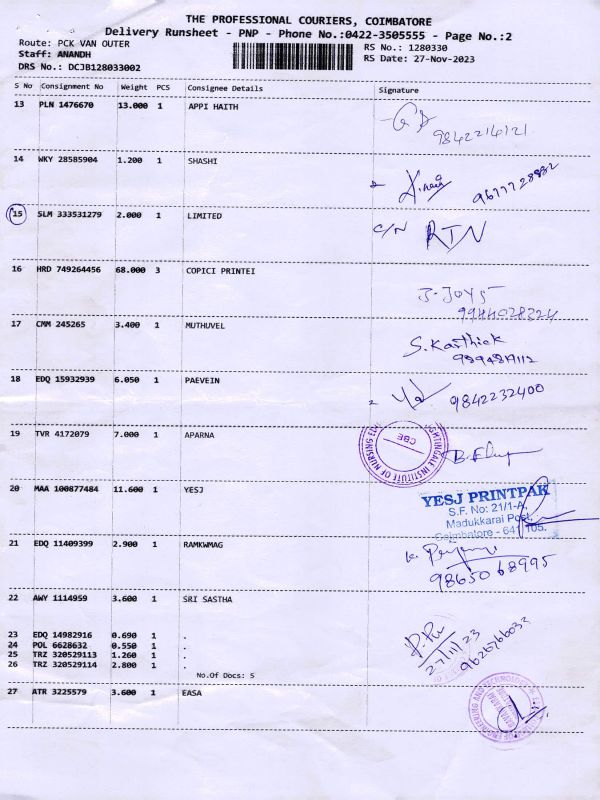 THE PROFESSIONAL COURIERS, COIMBATORE
Delivery Runsheet - PNP - Phone No.:0422-3505555 - Page No.:2
Route: PCK VAN OUTER RS No.: 1280330
Staff: ANANDH RS Date: 27-Nov-2023
DRS No.: DCJB128033002
S No Consignment No Weight PCS Consignee Details Signature
13 PLN 1476670 13.000 1 APPI HAITH
9842214121
14 WKY 28585904 1.200 1 SHASHI
9677728882
15 SLM 333531279 2.000 1 LIMITED C/N RTN
16 HRD 749264456 68.000 3 COPICI PRINTEI
J. JOYS
9944028324
17 CMM 245265 3.400 1 MUTHUVEL S. Karthick
9894819112
18 EDQ 15932939 6.050 1 PAEVEIN 9842232400
19 TVR 4172079 7.000 1 APARNA
CBE
20 MAA 100877484 11.600 1 YESJ
YESJ PRINTPAK
S.F. No: 21/1-A,
Madukkarai Post,
Coimbatore - 641 105.
21 EDQ 11409399 2.900 1 RAMKWMAG
9865068995
22 AWY 1114959 3.600 1 SRI SASTHA
23 EDQ 14982916 0.690 1 .
24 POL 6628632 0.550 1 .
25 TRZ 320529113 1.260 1 .
26 TRZ 320529114 2.800 1 .
27/11/23
9626766032
No.Of Docs: 5
27 ATR 3225579 3.600 1 EASA